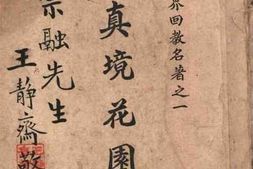 界回教名著之一
真境花園
宗融先生
王靜齋敬